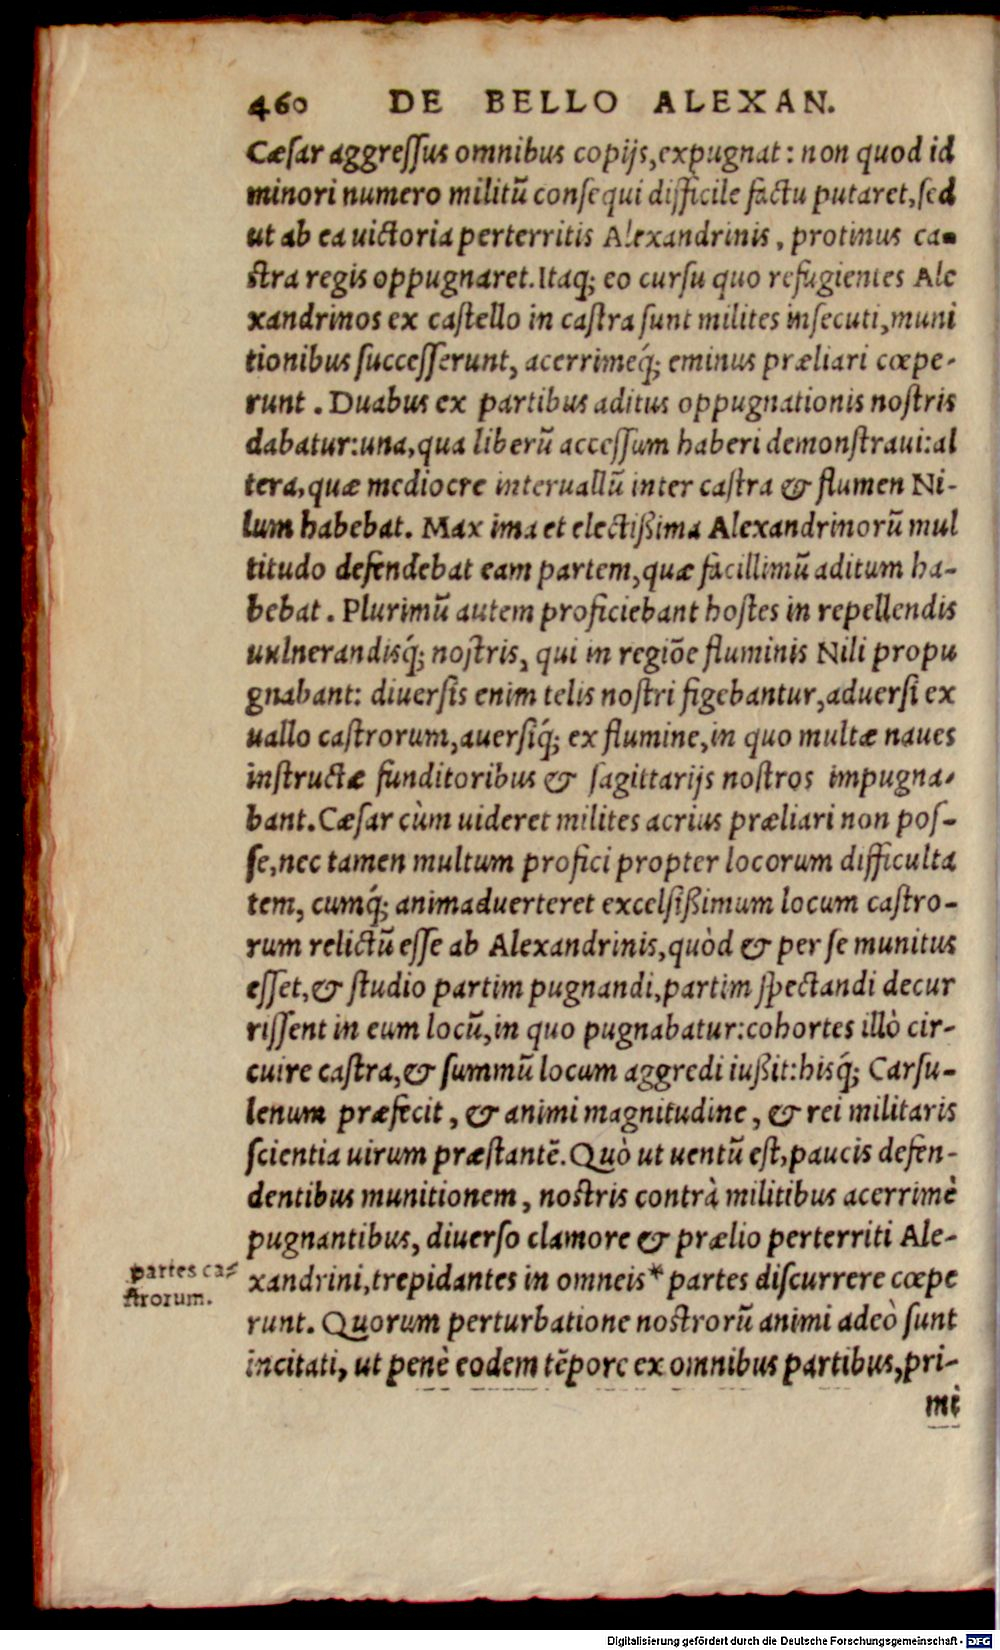 460 DE BELLO ALEXAN.
Cæſar aggreſſus omnibus copijs, expugnat: non quod id
minori numero militũ conſequi difficile factu putaret, ſed
ut ab ea uictoria perterritis Alexandrinis, protinus ca-
ſtra regis oppugnaret. Itaq; eo curſu quo refugientes Ale
xandrinos ex caſtello in caſtra ſunt milites inſecuti, muni
tionibus ſucceſſerunt, acerrimeq́; eminus præliari cœpe-
runt. Duabus ex partibus aditus oppugnationis noſtris
dabatur: una, qua liberũ acceſſum haberi demonſtraui: al
tera, quæ mediocre interuallũ inter caſtra & flumen Ni-
lum habebat. Max ima et electißima Alexandrinorũ mul
titudo defendebat eam partem, quæ facillimũ aditum ha-
bebat. Plurimũ autem proficiebant hostes in repellendis
uulnerandisq́; noſtris, qui in regiõe fluminis Nili propu
gnabant: diuerſis enim telis noſtri figebantur, aduerſi ex
uallo caſtrorum, auerſiq́; ex flumine, in quo multæ naues
inſtructæ funditoribus & ſagittarijs noſtros impugna-
bant. Cæſar cùm uideret milites acrius præliari non poſ-
ſe, nec tamen multum profici propter locorum difficulta
tem, cumq́; animaduerteret excelſißimum locum caſtro-
rum relictũ eſſe ab Alexandrinis, quòd & per ſe munitus
eſſet, & ſtudio partim pugnandi, partim ſpectandi decur
riſſent in eum locũ, in quo pugnabatur: cohortes illò cir-
cuire caſtra, & ſummũ locum aggredi iußit: hisq́; Carſu-
lenum præfecit, & animi magnitudine, & rei militaris
ſcientia uirum præſtantẽ. Quò ut uentũ eſt, paucis defen-
dentibus munitionem, noſtris contrà militibus acerrimè
pugnantibus, diuerſo clamore & prælio perterriti Ale-
xandrini, trepidantes in omneis* partes diſcurrere cœpe
runt. Quorum perturbatione noſtrorũ animi adeò ſunt
incitati, ut penè eodem tẽpore ex omnibus partibus, pri-
mi
partes ca-
ſtrorum.
Digitalisierung gefördert durch die Deutsche Forschungsgemeinschaft - DFG